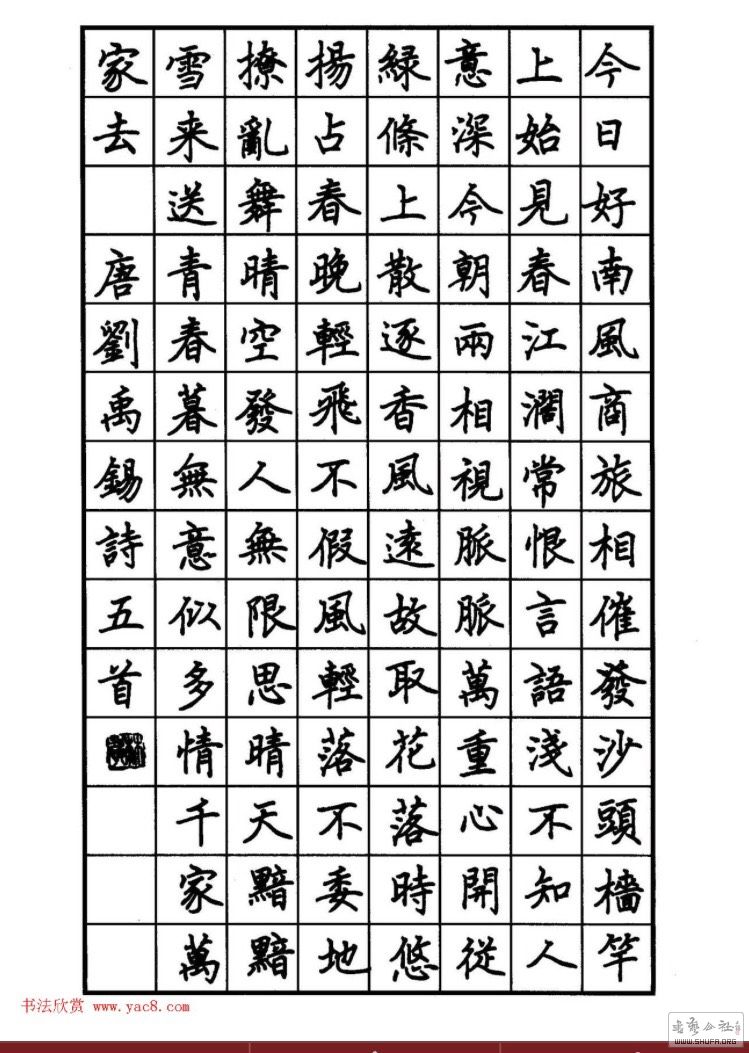 今日好南風商旅相催發沙頭檣竿
上始見春江濶常恨言語淺不知人
意深今朝兩相視脈脈萬重心開從
綠條上散逐香風遠故取花落時悠
揚占春晚輕飛不假風輕落不委地
撩亂舞晴空發人無限思晴天黯黯
雪来送青春暮無意似多情千家萬
家去 唐劉禹錫詩五首
书法欣赏 www.yac8.com
WWW.SHUFA.ORG